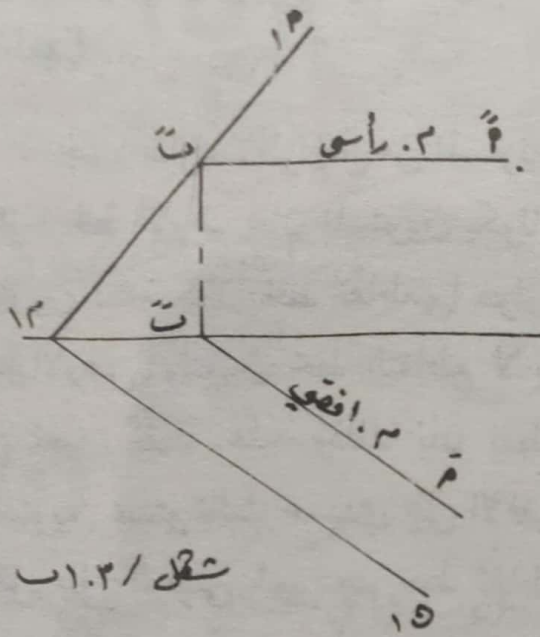 م١
تً
م. رأسي
مً
م١
تَ
م. افقي
مَ
شكل /١٠٣ب